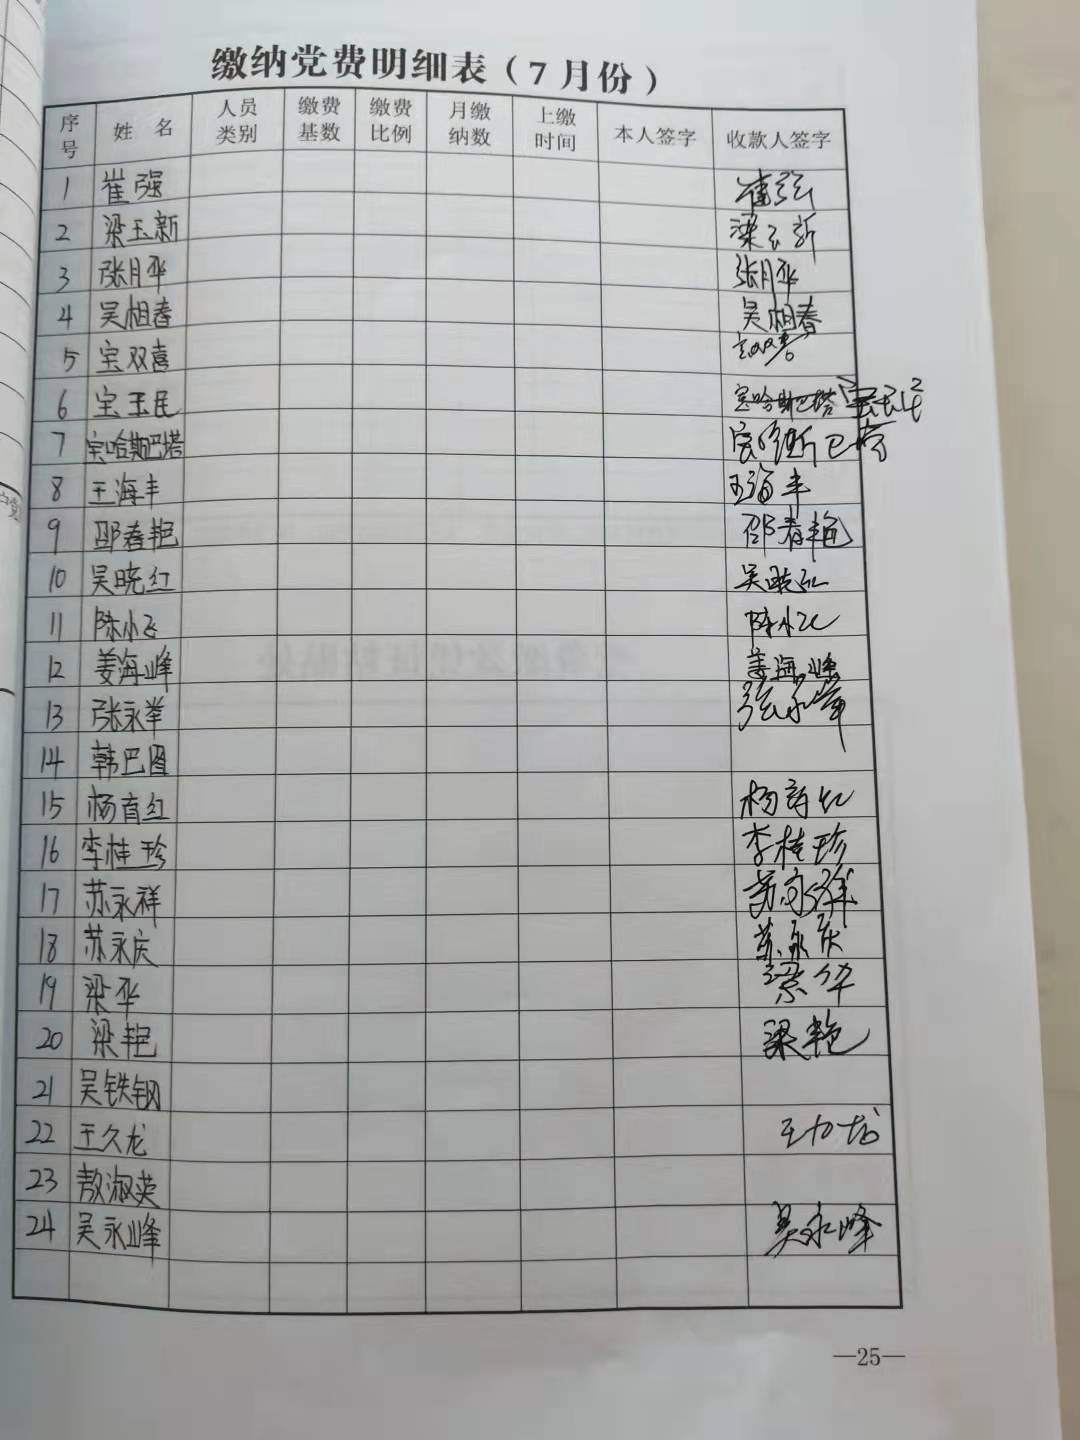 缴纳党费明细表（7月份）
序号 姓 名 人员类别 缴费基数 缴费比例 月缴纳数 上缴时间 本人签字 收款人签字
1 崔强 崔强
2 梁玉新 梁玉新
3 张月华 张月华
4 吴相春 吴相春
5 宝双喜
6 宝玉民 宝哈斯巴塔
7 宝哈斯巴塔 宝哈斯巴塔
8 王海丰 王海丰
9 邵春艳 邵春艳
10 吴晓红 吴晓红
11 陈小飞 陈小飞
12 姜海峰 姜海峰
13 张永举 张永举
14 韩巴图
15 杨育红 杨育红
16 李桂珍 李桂珍
17 苏永祥 苏永祥
18 苏永庆 苏永庆
19 梁华 梁华
20 梁艳 梁艳
21 吴铁钢
22 王久龙 王久龙
23 敖淑英
24 吴永峰 吴永峰
—25—